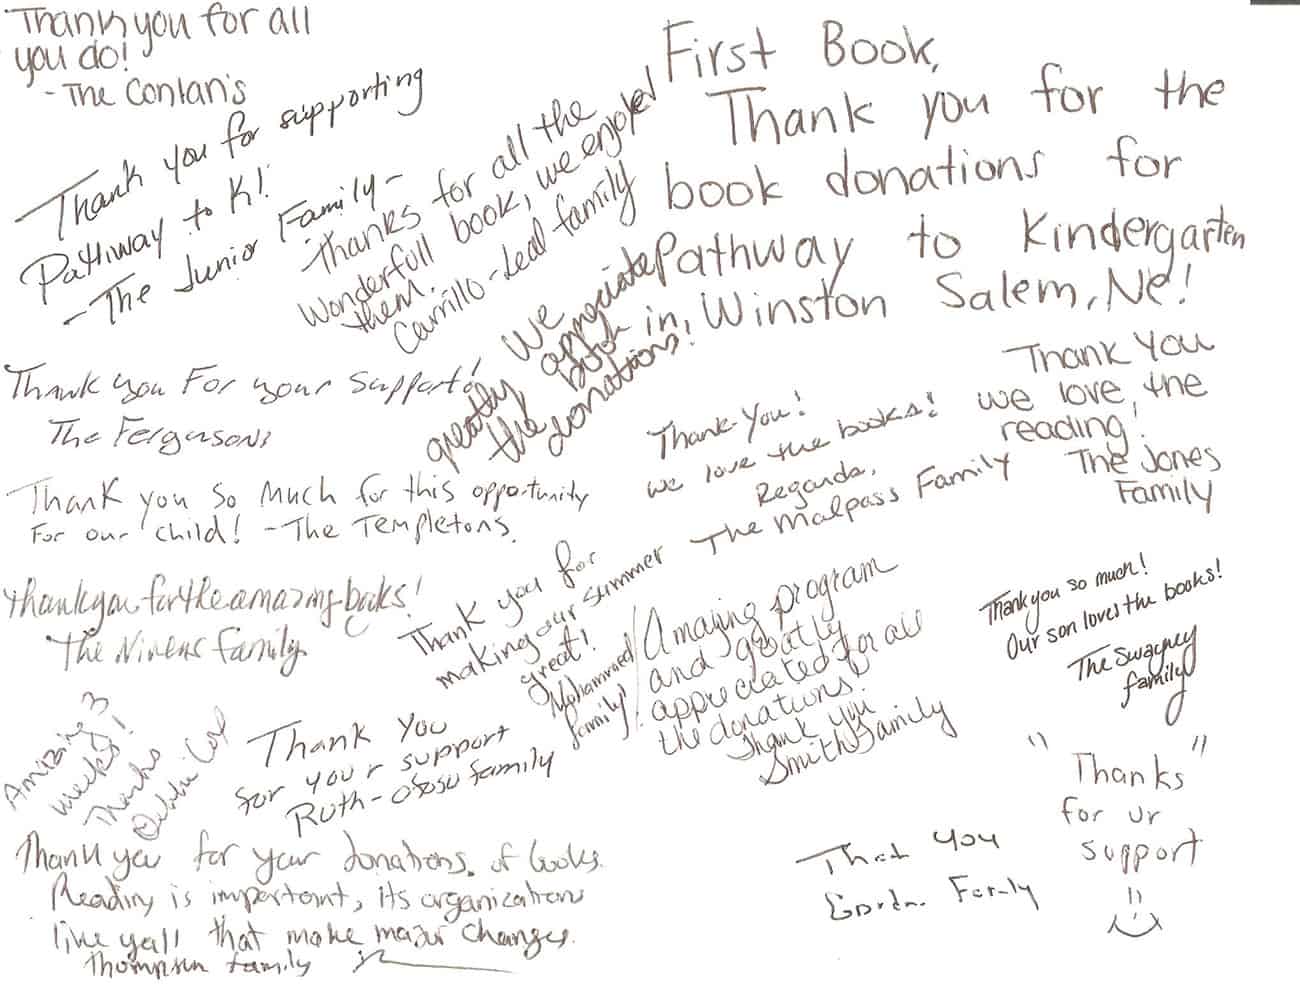 Thank you for all
you do!
- The Conlan's
Thank you for supporting
Pathway to K!
- The Junior Family -
Thanks for all the
Wonderfull book, we enjoyed
them.
Carrillo - Leal family
First Book,
Thank you for the
book donations for
Pathway to Kindergarten
in Winston Salem, Nc!
We
greatly appreciate
the book
donations!
Thank you For your support!
The Fergusons
Thank You!
we love the books!
Regards,
The Malpass Family
Thank You
we love the
reading!
The Jones
Family
Thank you so much for this opportunity
for our child! - The Templetons.
thank you for the amazing books!
The Family
Thank you for
making our summer
great!
Mohammed
family!
Amazing program
and greatly
appreciated for all
the donations!
Thank you
Smith Family
Thank you so much!
Our son loves the books!
The Swayney
family
Amazing 3
weeks!
Thanks
Debbie
Thank You
for your support
Ruth - Ofosu family
"Thanks"
for ur
support
Thank you for your donations of books.
Reading is important, its organizations
like yall that make major changes.
Thompson family
you
Family